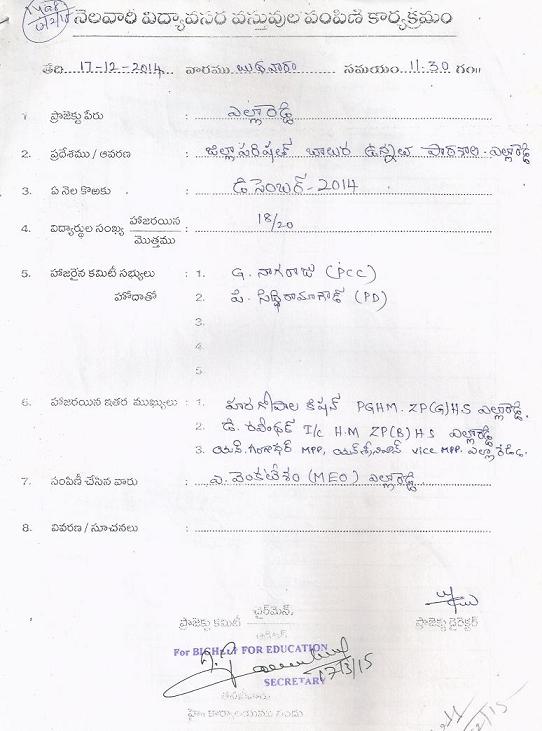 నెలవారీ విద్యావసర వస్తువుల పంపిణీ కార్యక్రమం
తేది 17-12-2014 వారము బుధవారం సమయం 11.30 గం॥
1 ప్రాజెక్టు పేరు : ఎల్లారెడ్డి
2. ప్రదేశము / ఆవరణ : జిల్లా పరిషత్ బాలుర ఉన్నత పాఠశాల - ఎల్లారెడ్డి
3. ఏ నెల కొఱకు : డిసెంబర్ - 2014
4. విద్యార్థుల సంఖ్య హాజరయిన / మొత్తము : 18/20
5. హాజరైన కమిటీ సభ్యులు : 1. G. నాగరాజు (PCC)
హోదాతో 2. పి. సిద్ధిరామాగౌడ్ (PD)
3.
4
5
6. హాజరయిన ఇతర ముఖ్యులు : 1. గోపాల కిషన్ PGHM. ZP(G)HS ఎల్లారెడ్డి.
2. డి. రవీందర్ I/c H.M ZP(B)HS ఎల్లారెడ్డి
3. యన్. గంగాధర్ MPP, Vice MPP. ఎల్లారెడ్డి.
7. పంపిణీ చేసిన వారు : ఎ. వెంకటేశం (MEO) ఎల్లారెడ్డి
8. వివరణ / సూచనలు :
చైర్మెన్,
ప్రాజెక్టు కమిటీ ప్రాజెక్టు డైరెక్టర్
For BIGHELP FOR EDUCATION
17/3/15
SECRETARY
హై॥ కార్యాలయము నందు